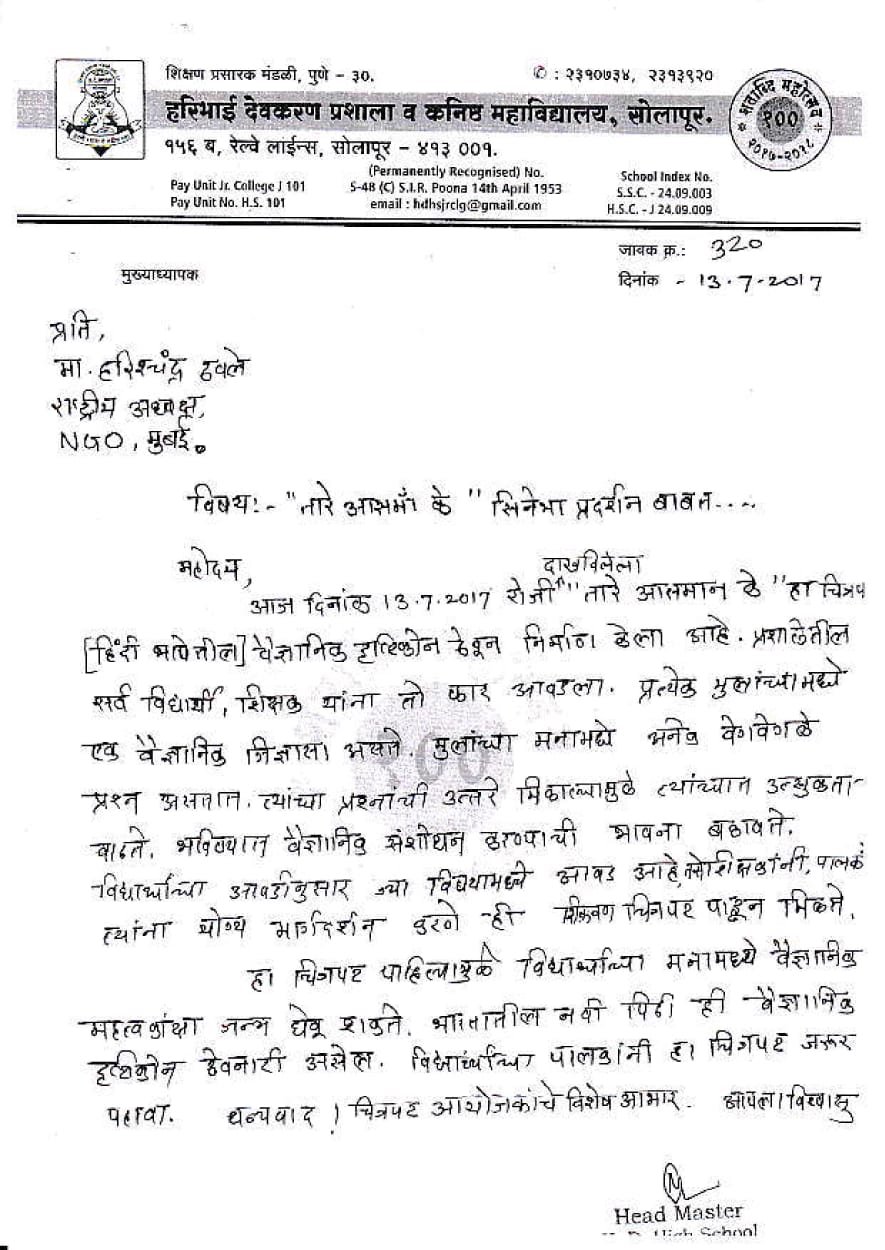 शिक्षण प्रसारक मंडळी, पुणे - ३०.
✆ : २३१०७३४, २३१३९२०
हरिभाई देवकरण प्रशाला व कनिष्ठ महाविद्यालय, सोलापूर.
१५६ ब, रेल्वे लाईन्स, सोलापूर - ४१३ ००१.
शताब्दि महोत्सव
१००
२०१७-२०१८
(Permanently Recognised) No.
Pay Unit Jr. College J 101 S-48 (C) S.I.R. Poona 14th April 1953
Pay Unit No. H.S. 101 email : hdhsjrclg@gmail.com
School Index No.
S.S.C. - 24.09.003
H.S.C. - J 24.09.009
जावक क्र.: 320
मुख्याध्यापक
दिनांक - 13.7.2017
प्रति,
मा. हरिश्चंद्र ढवले
राष्ट्रीय अध्यक्ष,
NGO, मुंबई.
विषय:- "तारे आसमाँ के" सिनेमा प्रदर्शन बाबत....
महोदय,
आज दिनांक 13.7.2017 रोजी दाखविलेला "तारे आसमान के" हा चित्रप
[हिंदी भाषेतील] वैज्ञानिक दृष्टिकोन ठेवून निर्माण केला आहे. प्रशालेतील
सर्व विद्यार्थी, शिक्षक यांना तो फार आवडला. प्रत्येक मुलांच्यामध्ये
एक वैज्ञानिक जिज्ञासा असते. मुलांच्या मनामध्ये अनेक वेगवेगळे
प्रश्न असतात. त्यांचा प्रश्नांची उत्तरे मिळाल्यामुळे त्यांच्यात उत्सुकता
वाढते. भविष्यात वैज्ञानिक संशोधन करण्याची भावना बळावते.
विद्यार्थ्यांच्या आवडीनुसार ज्या विषयामध्ये आवड आहे, शिक्षकांनी, पालकं
त्यांना योग्य मार्गदर्शन करणे ही शिकवण चित्रपट पाहून मिळते.
हा चित्रपट पाहिल्यामुळे विद्यार्थ्यांच्या मनामध्ये वैज्ञानिक
महत्वकांक्षा जन्म घेवू शकते. भारतातील नवी पिढी ही वैज्ञानिक
दृष्टिकोन ठेवनारी असेल. विद्यार्थ्यांच्या पालकांनी हा चित्रपट जरूर
पहावा. धन्यवाद ! चित्रपट आयोजकांचे विशेष आभार. आपला विश्वासु
Head Master
High School